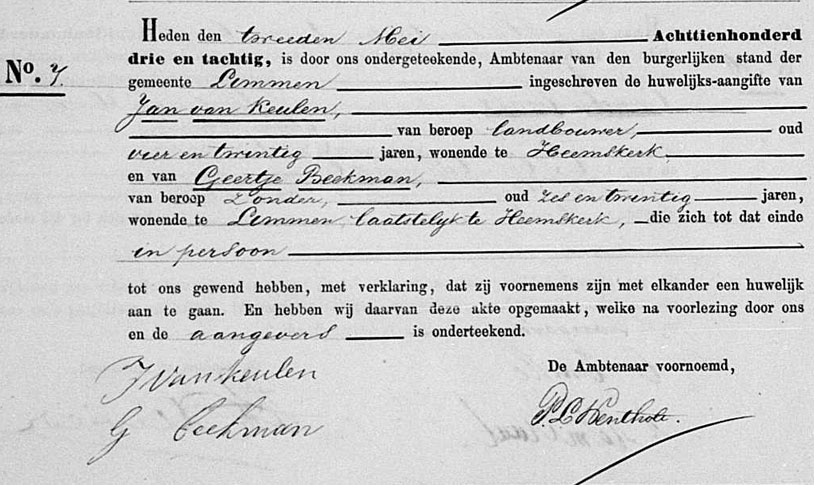 Heden den tweeden Mei Achttienhonderd
drie en tachtig, is door ons ondergeteekende, Ambtenaar van den burgerlijken stand der
No. 7
gemeente Limmen ingeschreven de huwelijks-aangifte van
Jan van Keulen,
van beroep landbouwer, oud
vier en twintig jaren, wonende te Heemskerk
en van Geertje Beekman,
van beroep zonder, oud zes en twintig jaren,
wonende te Limmen, laatstelijk te Heemskerk, die zich tot dat einde
in persoon
tot ons gewend hebben, met verklaring, dat zij voornemens zijn met elkander een huwelijk
aan te gaan. En hebben wij daarvan deze akte opgemaakt, welke na voorlezing door ons
en de aangevers is onderteekend.
De Ambtenaar voornoemd,
J van keulen
G beekman